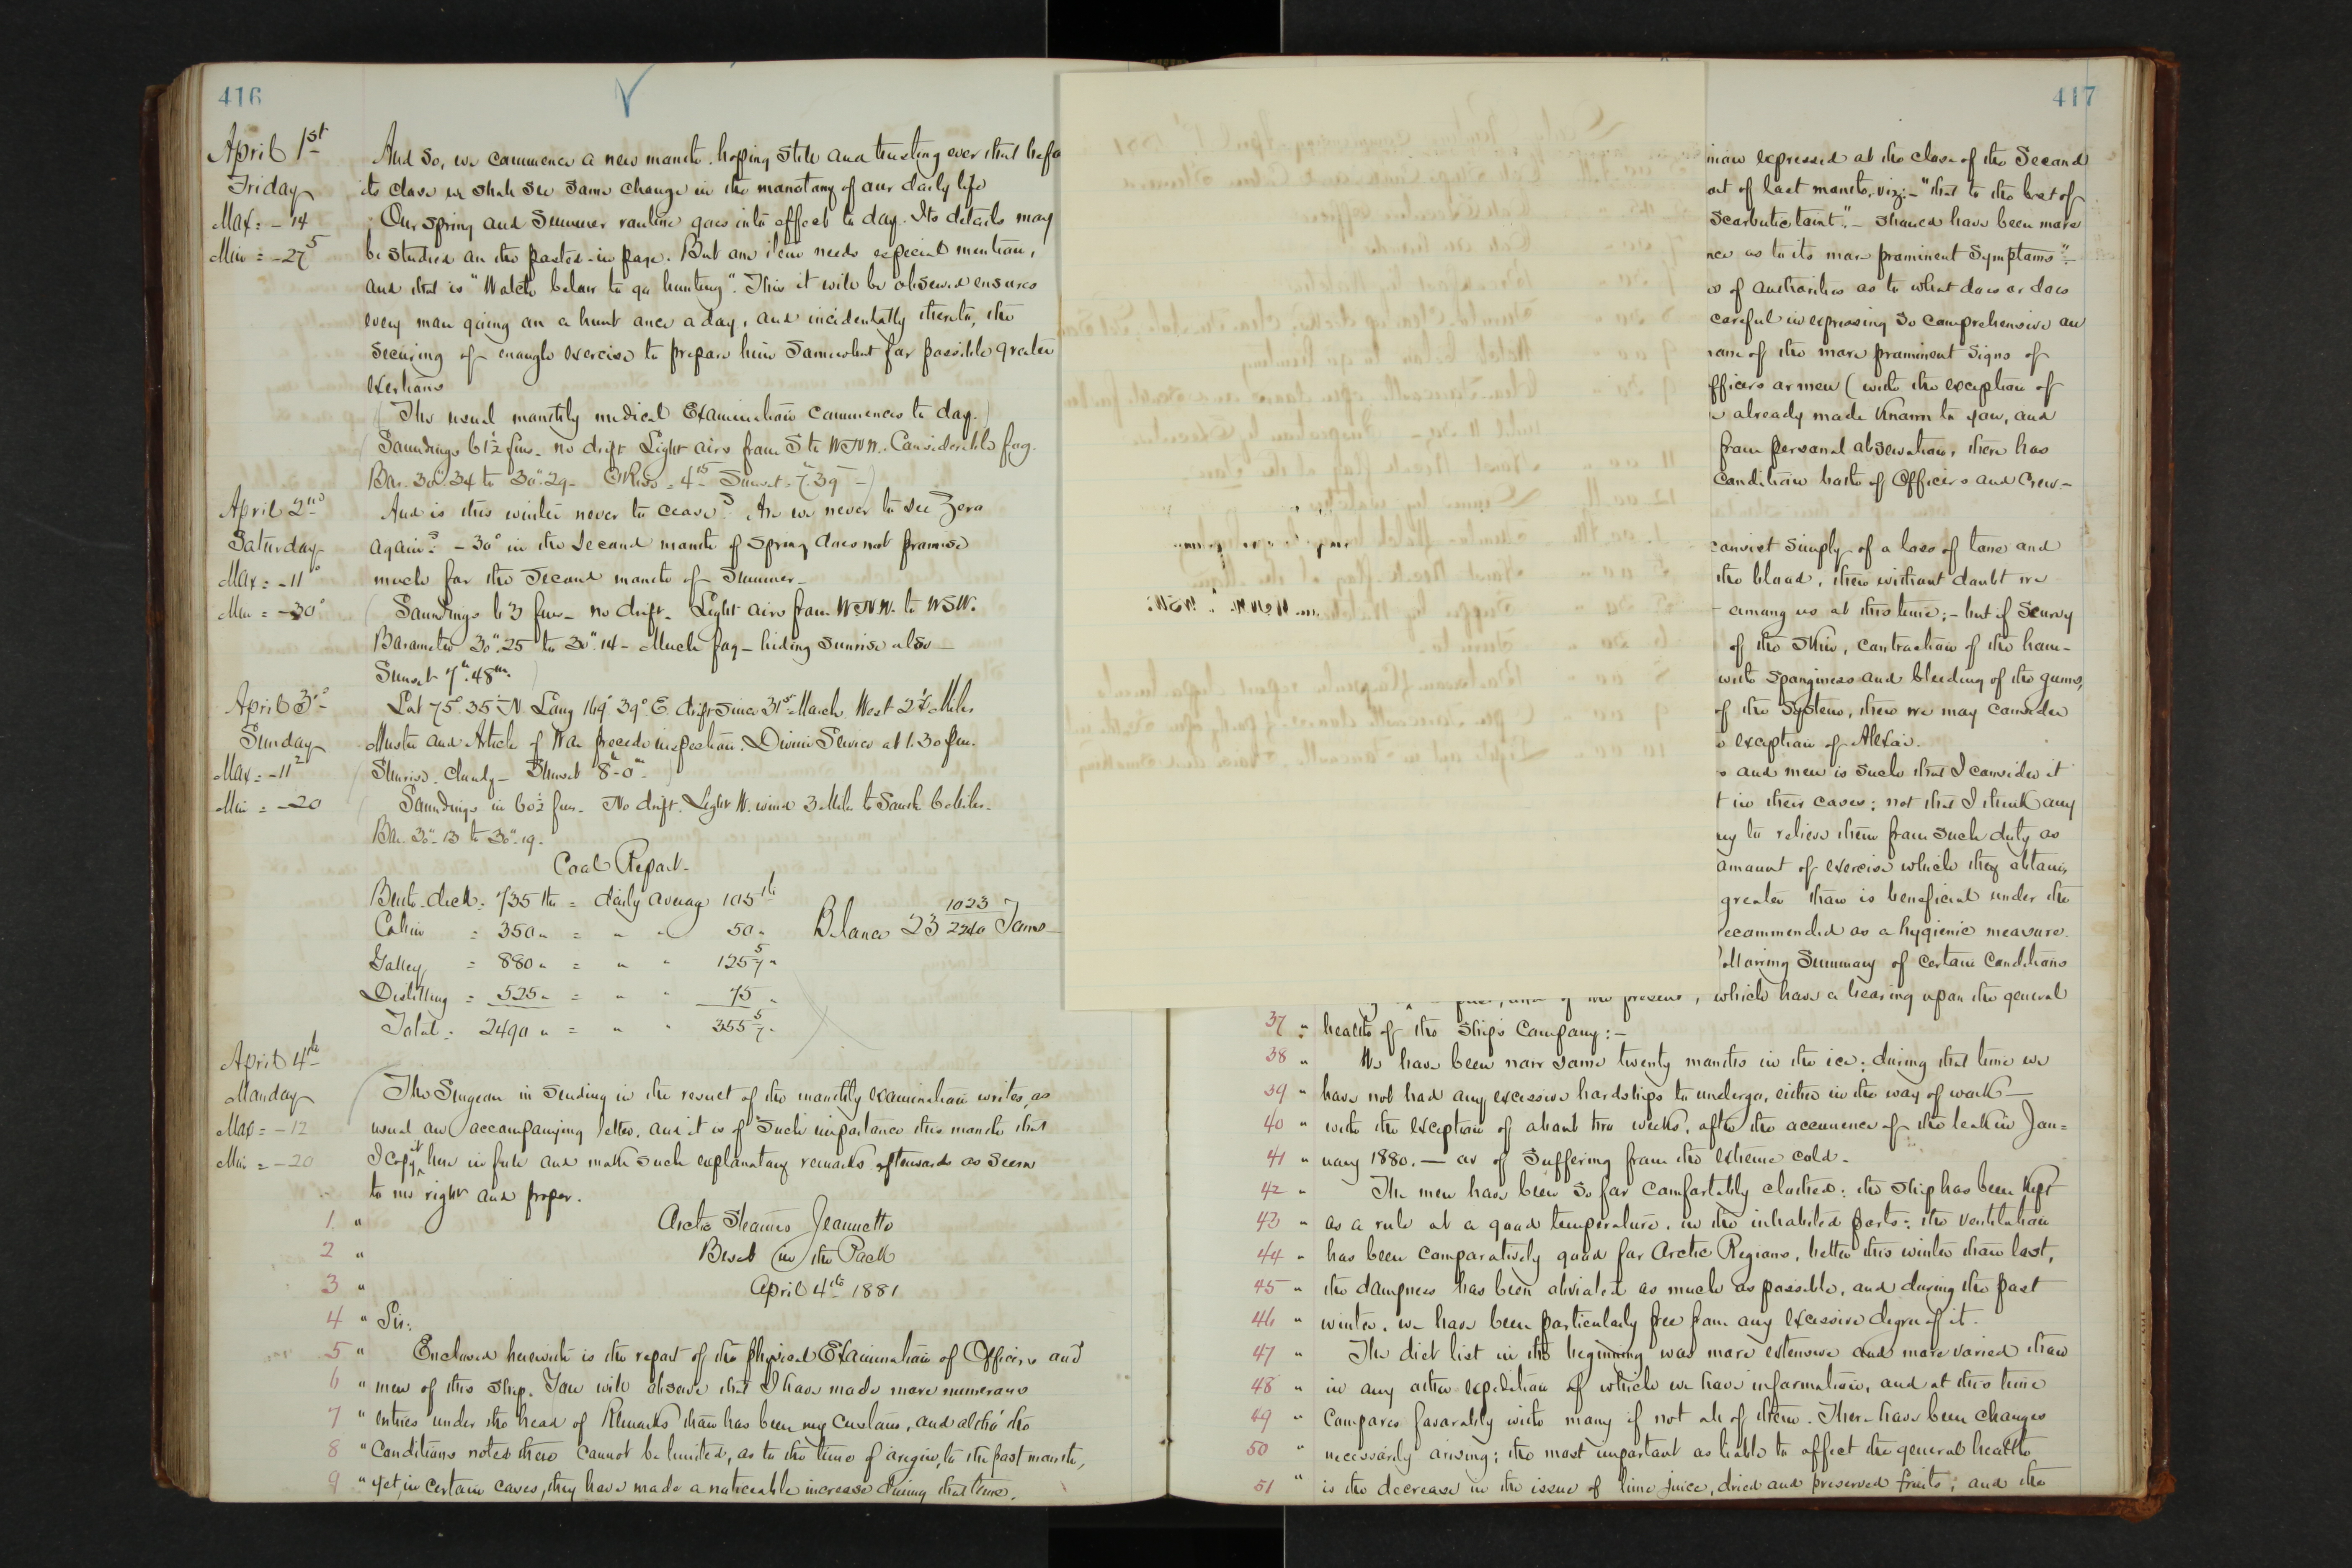 416
April 1st
And So, we commence a new month. hoping still and trusting ever that befo
Friday
its close we shall see some change in the monotony of our daily life
Max = -14
Our spring and Summer routine goes into effect to day. Its details may
Min = -27 5
be studied on the pasted-in page. But one item needs especial mention,
and that is "Watch below to go hunting". This it will be observed ensures
every man going on a hunt once a day, and incidentally thereto, the
securing of enough exercise to prepare him somewhat for possible greater
exertions
The usual monthly medical Examination commences to day.
Soundings 61½ fms. no drift Light airs from S to WNW. Considerable fog.
Bar. 30".34 to 30".29 -
April 2nd
And is this winter never to cease? Are we never to see Zero
Saturday
again? -30° in the Second month of Spring does not promise
Max = -11°
much for the Second month of Summer -
Min = -30°
Soundings 63 fms - no drift. Light airs from WNW. to WSW.
Barometer 30".25 to 30".14 - Much fog - hiding sunrise also
Sunset 7h.48m.
April 3rd
Lat 75°.35' N. Long 169° 39' E. drift since 31st March West 2½ Miles
Sunday
Muster and Article of War precede inspection. Divine Service at 1.30 pm.
Max = -11 2
Sunrise. Cloudy - Sunset 8h-0m.
Min = -20
Soundings in 60½ fms - No drift. Light N. wind 3 Miles to South 6 Miles.
Bar. 30".13 to 30".19.
Coal Report.
Berth-deck = 735 lbs = daily average 105 lbs
Cabin = 350 " = " " 50 "
Balance 23 1023/2240 Tons -
Galley = 880 " = " " 125 5/7 "
Distilling = 525 " = " " 75 "
Total = 2490 " = " " 355 5/7 "
April 4th
Monday
The Surgeon in sending in the result of the monthly examination writes, as
Max = -12
usual an accompanying letter. and it is of such importance this month that
Min = -20
I copy it here in full and make such explanatory remarks afterwards as seem
to me right and proper.
1 " Arctic Steamer Jeannette
2 " Beset in the Pack
3 " April 4th 1881
4 " Sir:
5 " Enclosed herewith is the report of the physical Examination of Officers and
6 " men of this ship. You will observe that I have made more numerous
7 " entries under the head of Remarks than has been my custom, and altho' the
8 " Conditions noted there cannot be limited, as to the time of origin, to the past month,
9 " yet, in certain cases, they have made a noticeable increase during that time.
417
nion expressed at the close of the Second
ort of last month, viz:- "that to the best of
Scorbutic taint". - should have been more
nce as to its more prominent Symptoms" -
s of authorities as to what does or does
careful in expressing so comprehensive an
none of the more prominent signs of
fficers or men (with the exception of
s already made known to you, and
from personal observation, there has
condition both of Officers and Crew -
consist simply of a loss of tone and
the blood, then without doubt we
among us at this time; - but if Scurvy
of the skin, contraction of the ham-
with sponginess and bleeding of the gums,
of the system, then we may consider
exception of Alexai.
s and men is such that I consider it
t in their cases; not that I think any
ny to relieve them from such duty as
amount of exercise which they obtain,
greater than is beneficial under the
recommended as a hygienic measure.
following Summary of certain Conditions
which have a bearing upon the general
37 " health of the ship's Company:-
38 " We have been now some twenty months in the ice; during that time we
39 " have not had any excessive hardships to undergo, either in the way of work -
40 " with the exception of about two weeks, after the occurrence of the leak in Jan=
41 " uary 1880. - or of suffering from the extreme cold -
42 " The men have been so far comfortably clothed; the ship has been kept
43 " as a rule at a good temperature, in the inhabited parts; the ventilation
44 " has been comparatively good for Arctic Regions, better this winter than last,
45 " the dampness has been obviated as much as possible, and during the past
46 " winter, we have been particularly free from any excessive degree of it.
47 " The diet list in the beginning was more extensive and more varied than
48 " in any other expedition of which we have information, and at this time
49 " compares favorably with many if not all of them. There have been changes
50 " necessarily arising; the most important as liable to affect the general health
51 " is the decrease in the issue of lime juice, dried and preserved fruits; and the